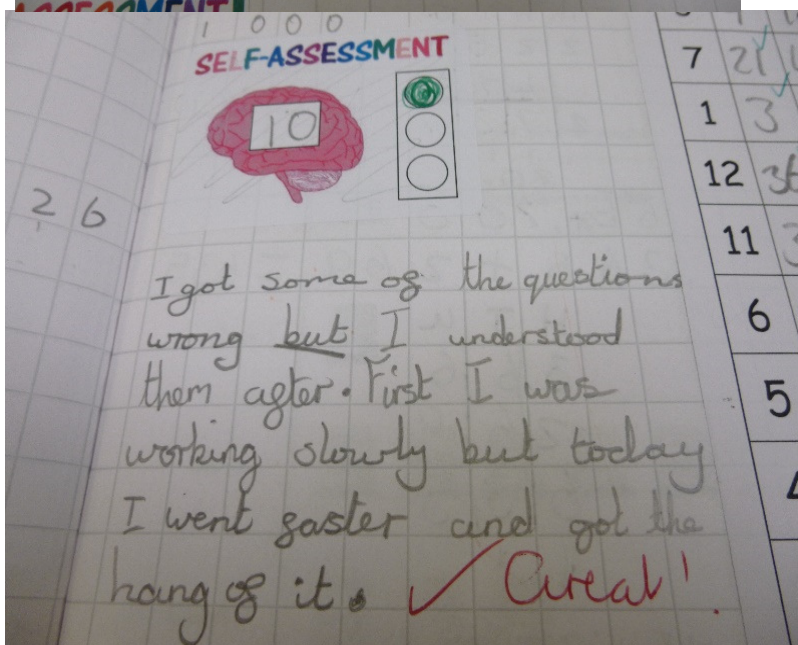 ASSESSMENT
1 0 0 0
SELF-ASSESSMENT
10
2 6
I got some of the questions
wrong but I understood
them after. First I was
working slowly but today
I went faster and got the
hang of it. ✓ Great!
7 21
1 3
12 36
11 3
6
5